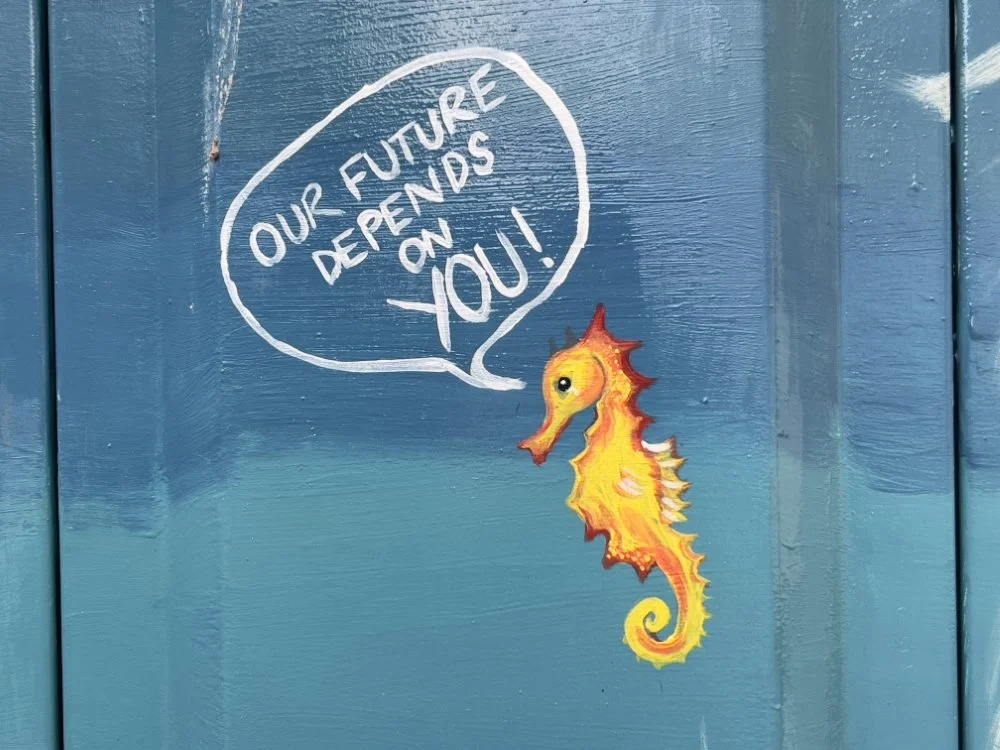 OUR FUTURE
DEPENDS
ON
YOU!